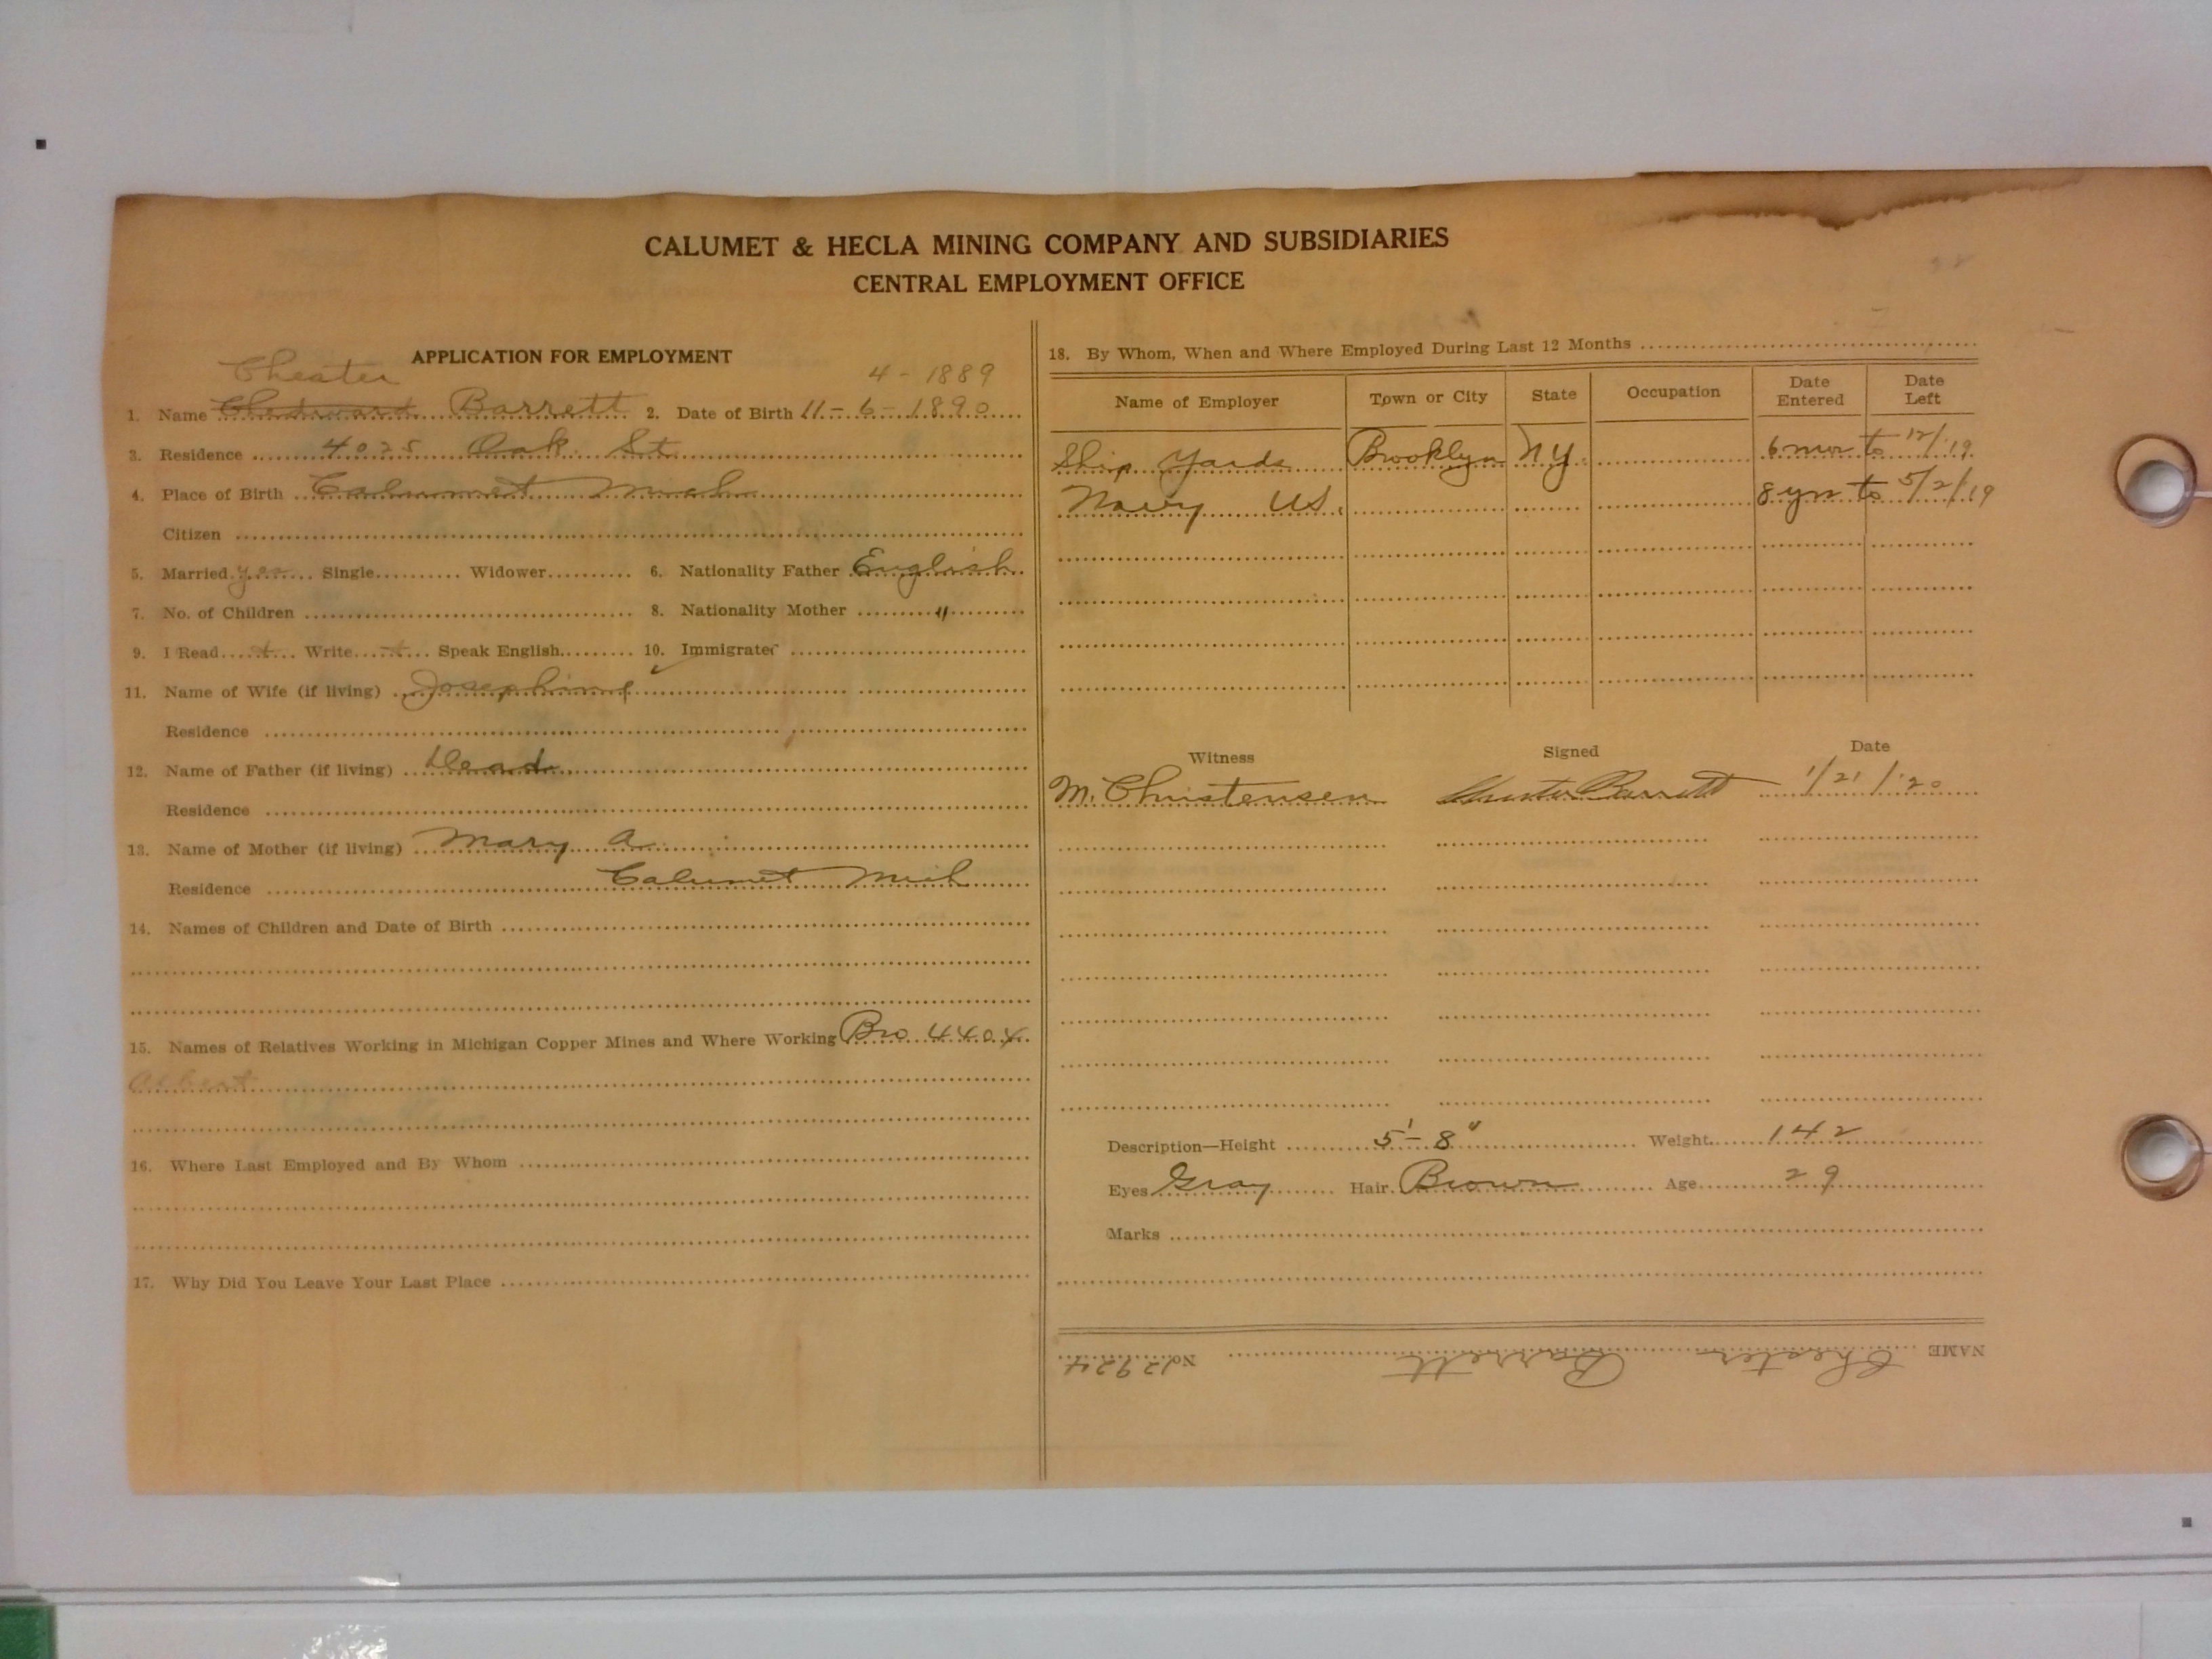 CALUMET & HECLA MINING COMPANY AND SUBSIDIARIES
CENTRAL EMPLOYMENT OFFICE
APPLICATION FOR EMPLOYMENT
Chester 4 - 1889
1. Name Barrett 2. Date of Birth 11-6-1890
3. Residence 4025 Oak St
4. Place of Birth Calumet Mich
Citizen
5. Married yes Single Widower 6. Nationality Father English
7. No. of Children 8. Nationality Mother "
9. I Read Write Speak English 10. Immigrated
11. Name of Wife (if living) Josephine
Residence
12. Name of Father (if living) Dead
Residence
13. Name of Mother (if living) Mary A
Residence Calumet Mich
14. Names of Children and Date of Birth
15. Names of Relatives Working in Michigan Copper Mines and Where Working Bro 4404
Albert
16. Where Last Employed and By Whom
17. Why Did You Leave Your Last Place
18. By Whom, When and Where Employed During Last 12 Months
Name of Employer Town or City State Occupation Date Entered Date Left
Ship Yards Brooklyn NY 6 mos to 12/'19
Navy US. 8 yrs to 5/2/19
Witness Signed Date
M. Christensen Chester Barrett 1/21/'20
Description—Height 5'-8" Weight 142
Eyes Gray Hair Brown Age 29
Marks
NAME Chester Barrett No. 12924